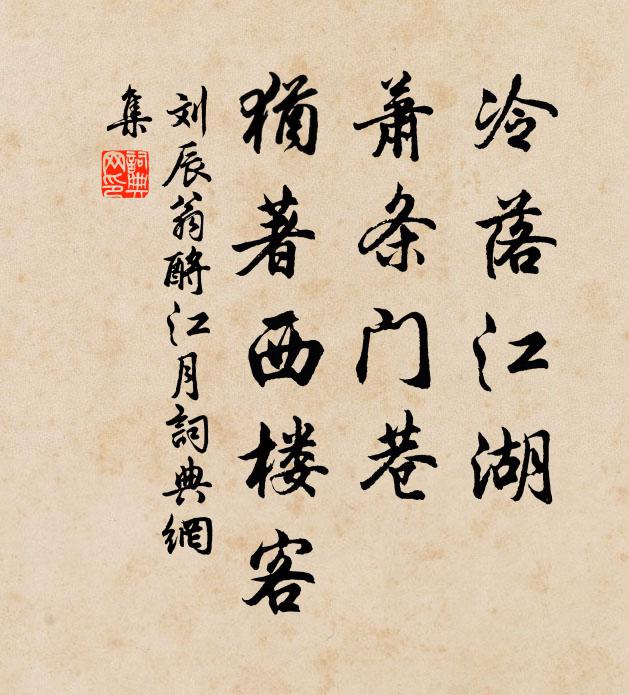 冷落江湖
萧条门巷
犹著西楼客
刘辰翁酹江月詞典網
集
詞典网印